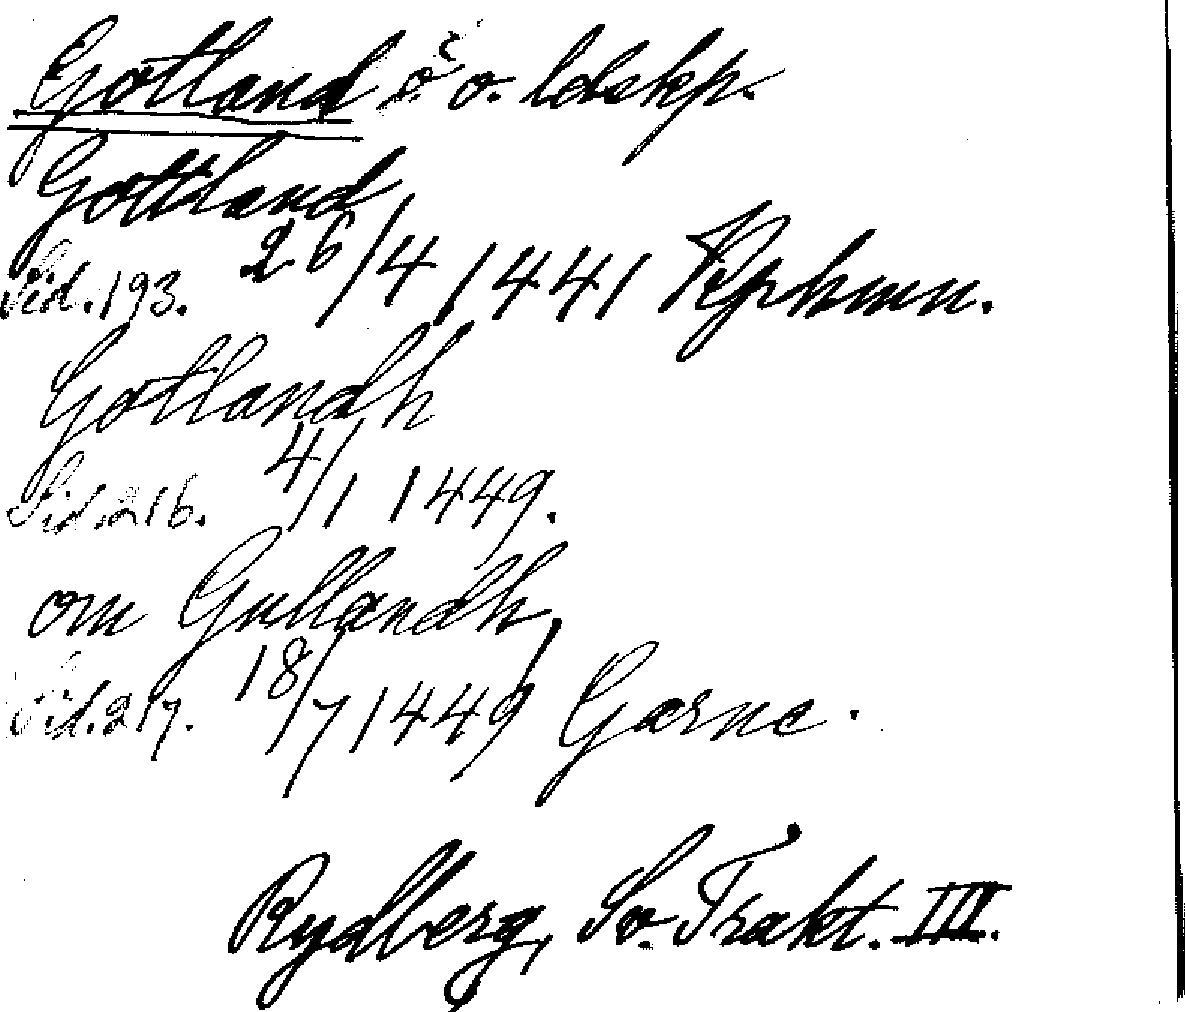 Gotland ö o. ldskp.
Gottland
Sid. 193. 26/4 1441 Kphmn.
Gotlandh
Sid. 216. 4/1 1449.
om Gullandh,
Sid. 217. 18/7 1449 Garne.
Rydberg, Sv. Trakt. III.